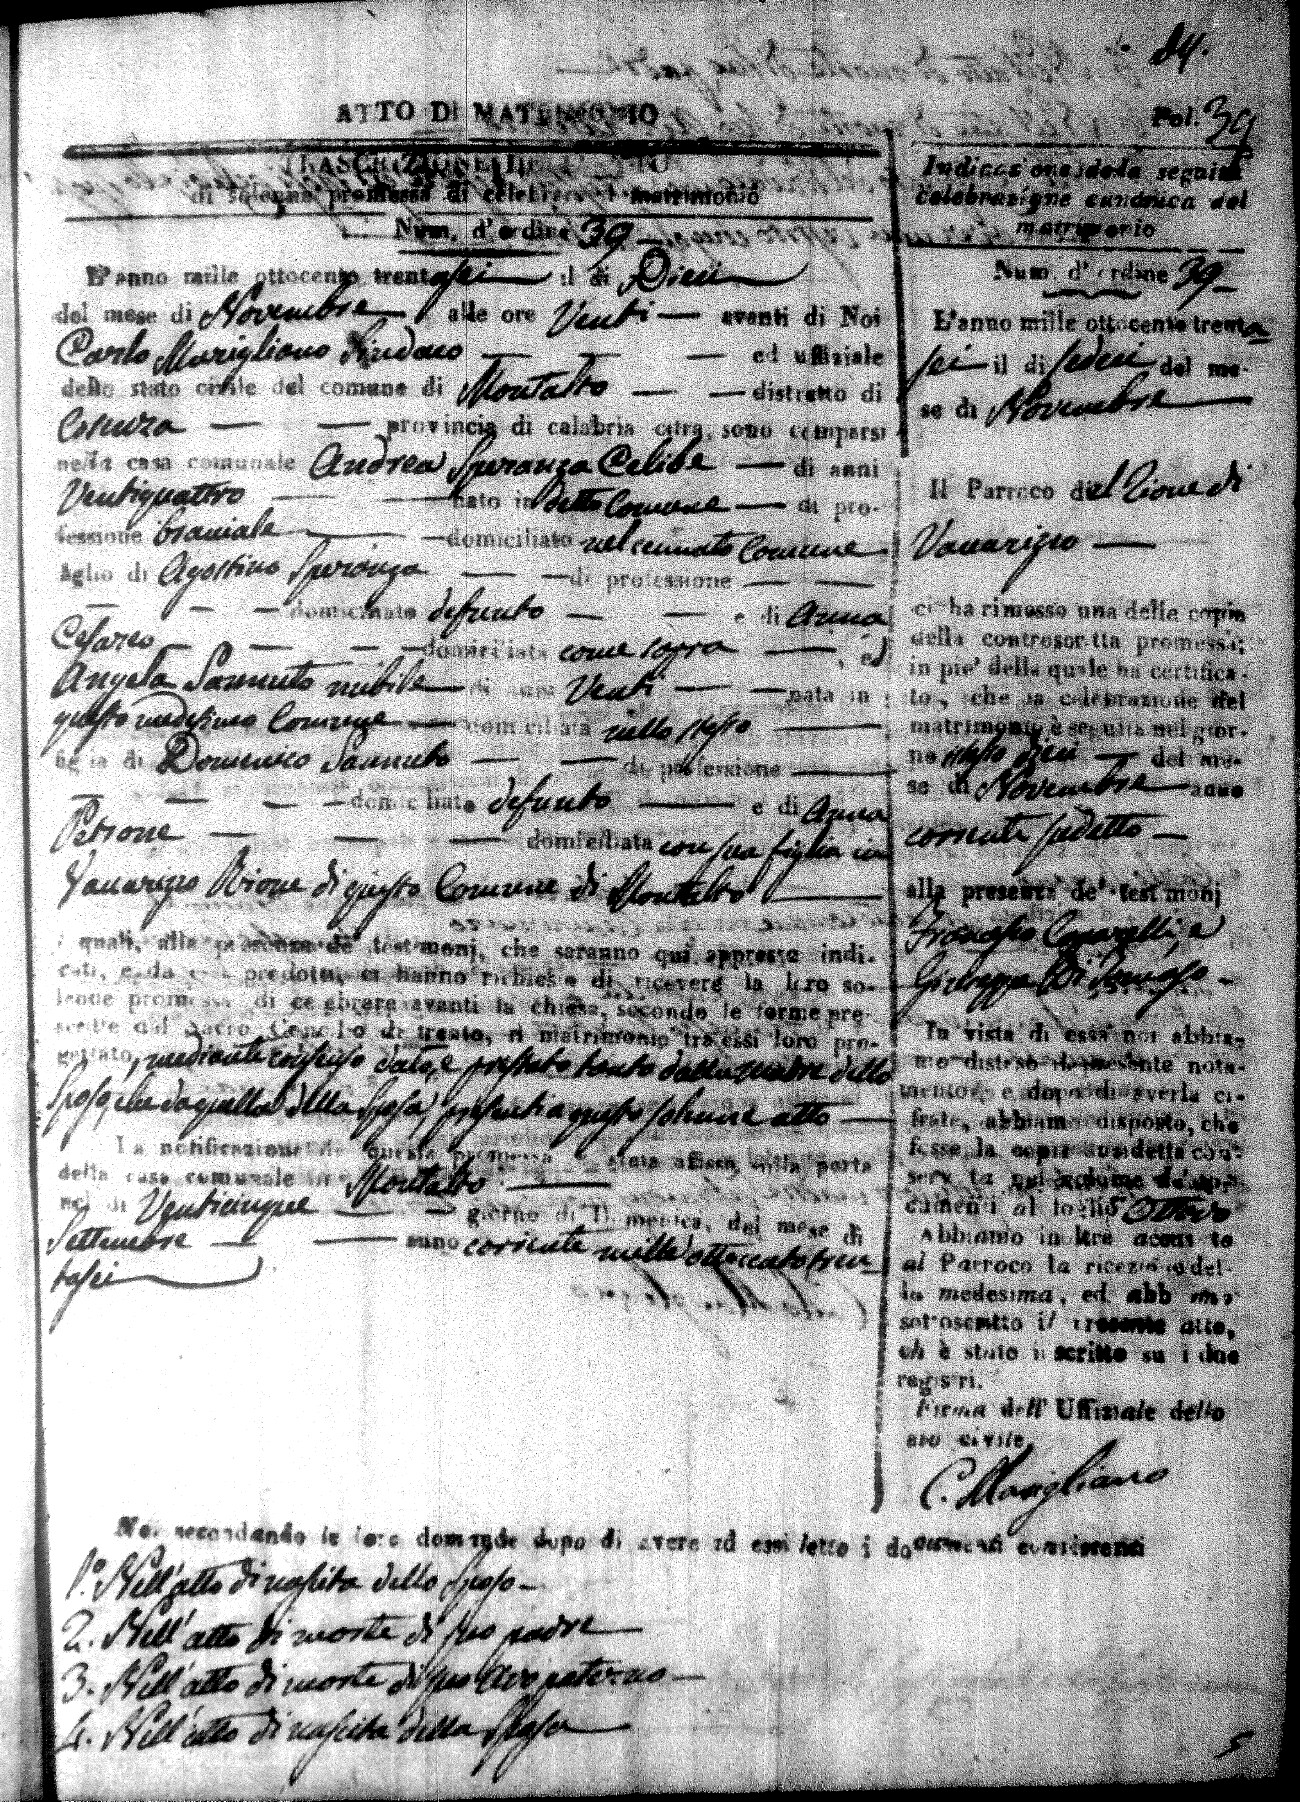 84.
ATTO DI MATRIMONIO
Fol. 39
TRASCRIZIONE
di solenne promessa di celebrare il matrimonio
Num. d'ordine 39
L'anno mille ottocento trentasei il di Dieci
del mese di Novembre alle ore Venti avanti di Noi
Carlo Marigliano Sindaco ed uffiziale
dello stato civile del comune di Montalto distretto di
Cosenza provincia di calabria citra, sono comparsi
nella casa comunale Andrea Speranza Celibe di anni
Ventiquattro nato in detto Comune di pro-
fessione braciale domiciliato nel cennato Comune
figlio di Agostino Speranza di professione
domiciliato defunto e di Anna
Cesareo domiciliata come sopra, ed
Angela Sannuto nubile di anni Venti nata in
questo medesimo Comune domiciliata nello stesso
figlia di Domenico Sannuto di professione
domiciliato defunto e di Anna
Petrone domiciliata con sua figlia in
Vaccarizzo Rione di questo Comune di Montalto
i quali, alla presenza de' testimonj, che saranno qui appresso indi-
cati, e da essi prodotti, ci hanno richiesto di ricevere la loro so-
lenne promessa di celebrare avanti la chiesa, secondo le forme pre-
scritte dal Sacro Concilio di trento, il matrimonio tra essi loro pro-
gettato, mediante consenso dato, e prestato tanto dalla madre dello
Sposo, che da quella della Sposa, presenti a questo solenne atto
La notificazione di questa promessa è stata affissa, sulla porta
della casa comunale in Montalto
nel di Venticinque giorno di Domenica, del mese di
Settembre anno corrente mille ottocento tren
tasei
Indicazione della seguita
celebrazione canonica del
matrimonio
Num. d'ordine 39
L'anno mille ottocento trenta
sei il di sedeci del me-
se di Novembre
Il Parroco del Rione di
Vaccarizzo
ci ha rimesso una delle copie
della controscritta promessa;
in piè della quale ha certifica-
to, che la celebrazione del
matrimonio è seguita nel gior-
no istesso dieci del me-
se di Novembre anno
corrente sudetto
alla presenza de' testimonj
Francesco e
Giuseppe
In vista di essa noi abbia-
mo disteso il presente nota-
mento, e dopo di averla ci-
frata, abbiamo disposto, che
fosse la copia suddetta con-
servata nel volume de' do-
cumenti al foglio Ottavo
Abbiamo inoltre accusato
al Parroco la ricezione del-
la medesima, ed abbiamo
sottoscritto il presente atto,
ch' è stato iscritto su i due
registri.
Firma dell' Uffiziale dello
stato civile.
C. Marigliano
Noi secondando le loro domande dopo di avere ad essi letto i documenti consistenti
1.º Nell'atto di nascita dello Sposo
2. Nell'atto di morte di suo padre
3. Nell'atto di morte di suo avo paterno
4. Nell'atto di nascita della Sposa